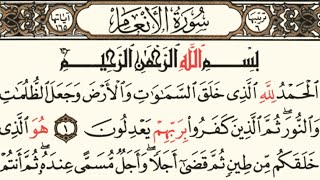 ترتيبها ٦ سُورَةُ الْأَنْعَامِ آياتها ١٦٥
بِسْمِ اللَّهِ الرَّحْمَٰنِ الرَّحِيمِ
الْحَمْدُ لِلَّهِ الَّذِي خَلَقَ السَّمَاوَاتِ وَالْأَرْضَ وَجَعَلَ الظُّلُمَاتِ
وَالنُّورَ ۖ ثُمَّ الَّذِينَ كَفَرُوا بِرَبِّهِمْ يَعْدِلُونَ ١ هُوَ الَّذِي
خَلَقَكُم مِّن طِينٍ ثُمَّ قَضَىٰ أَجَلًا ۖ وَأَجَلٌ مُّسَمًّى عِندَهُ ۖ ثُمَّ أَنتُمْ